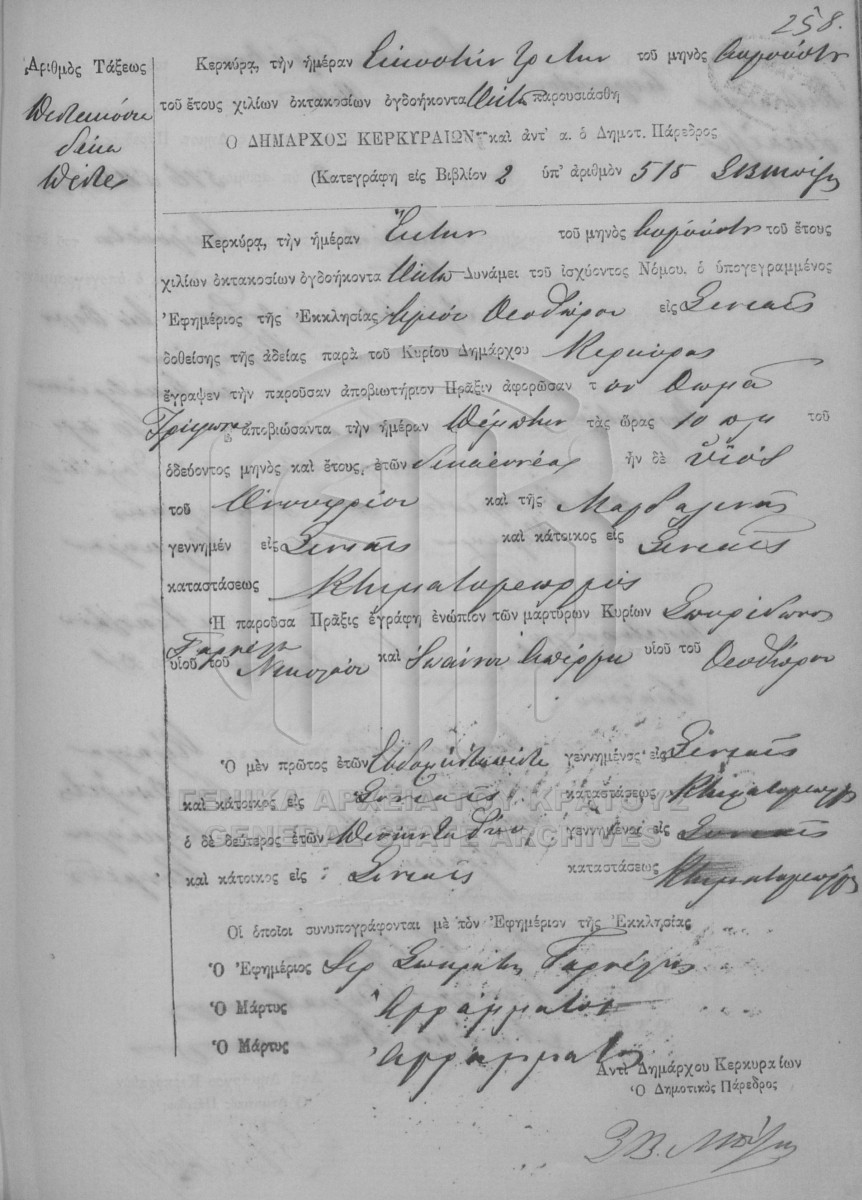 258.
Ἀριθμὸς Τάξεως
Πεντακόσια
δέκα
πέντε
Κερκύρᾳ, τὴν ἡμέραν Εἰκοστὴν τρίτην τοῦ μηνὸς Αὐγούστου
τοῦ ἔτους χιλίων ὀκτακοσίων ὀγδοήκοντα Ὀκτὼ παρουσιάσθη
Ο ΔΗΜΑΡΧΟΣ ΚΕΡΚΥΡΑΙΩΝ καὶ ἀντ' α. ὁ Δημοτ. Πάρεδρος
(Κατεγράφη εἰς Βιβλίον 2 ὑπ' ἀριθμὸν 515
Κερκύρᾳ, τὴν ἡμέραν Ἕκτην τοῦ μηνὸς Αὐγούστου τοῦ ἔτους
χιλίων ὀκτακοσίων ὀγδοήκοντα Ὀκτὼ Δυνάμει τοῦ ἰσχύοντος Νόμου, ὁ ὑπογεγραμμένος
Ἐφημέριος τῆς Ἐκκλησίας Ἁγίου Θεοδώρου εἰς Σινιαῖς
δοθείσης τῆς ἀδείας παρὰ τοῦ Κυρίου Δημάρχου Κερκύρας
ἔγραψεν τὴν παροῦσαν ἀποβιωτήριον Πρᾶξιν ἀφορῶσαν τ ον Θωμᾶ
ἀποβιώσαντα τὴν ἡμέραν Πέμπτην τὰς ὥρας 10 πμ τοῦ
ὁδεύοντος μηνὸς καὶ ἔτους, ἐτῶν δεκαεννέα ἦν δὲ υἱὸς
τοῦ Ὀνουφρίου καὶ τῆς Μαγδαληνῆς
γεννημέν εἰς Σινιαῖς καὶ κάτοικος εἰς Σινιαῖς
καταστάσεως Κτηματογεωργός
Ἡ παροῦσα Πρᾶξις ἐγράφη ἐνώπιον τῶν μαρτύρων Κυρίων Σπυρίδωνος
υἱοῦ τοῦ Νικολάου καὶ Ἰωάννου υἱοῦ τοῦ Θεοδώρου
Ὁ μὲν πρῶτος ἐτῶν Ἑβδομήντα πέντε γεννημένος εἰς Σινιαῖς
καὶ κάτοικος εἰς Σινιαῖς καταστάσεως Κτηματογεωργός
ὁ δὲ δεύτερος ἐτῶν Πενήντα δύω γεννημένος εἰς Σινιαῖς
καὶ κάτοικος εἰς Σινιαῖς καταστάσεως Κτηματογεωργός
ΓΕΝΙΚΑ ΑΡΧΕΙΑ ΤΟΥ ΚΡΑΤΟΥΣ
GENERAL STATE ARCHIVES
Οἱ ὁποῖοι συνυπογράφονται μὲ τὸν Ἐφημέριον τῆς Ἐκκλησίας
Ὁ Ἐφημέριος
Ὁ Μάρτυς Ἀγράμματος
Ὁ Μάρτυς Ἀγράμματος
Ἀντὶ Δημάρχου Κερκυραίων
Ὁ Δημοτικὸς Πάρεδρος